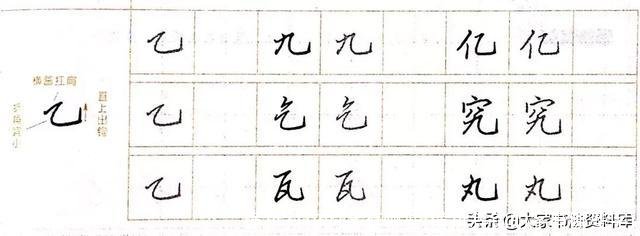 横画扛肩
折角宜小
乙
直上出钩
乙 九 九 亿 亿
乙 乞 乞 究 究
乙 瓦 瓦 丸 丸
头条 @大家书法资料库